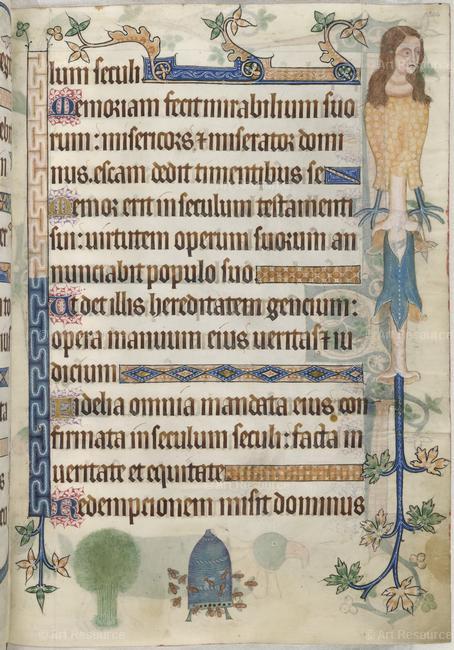 lum seculi
Memoriam fecit mirabilium suo
rum : misericors ⁊ miserator domi
nus. escam dedit timentibus se
Memor erit in seculum testamenti
sui : uirtutem operum suorum an
nunciabit populo suo
Ut det illis hereditatem gencium :
opera manuum eius ueritas ⁊ iu
dicium
Fidelia omnia mandata eius con
firmata in seculum seculi : facta in
ueritate et equitate
Redempcionem misit dominus
© Art Resource
© Art Resource